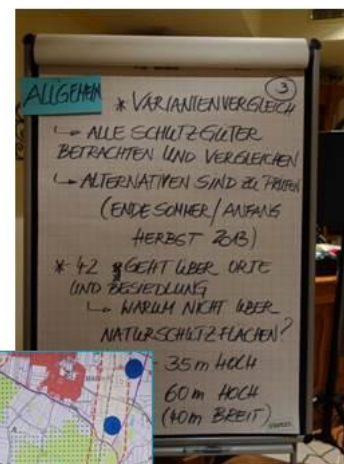 ALLGEMEIN
3
* VARIANTENVERGLEICH
↳ ALLE SCHUTZGÜTER
BETRACHTEN UND VERGLEICHEN
↳ ALTERNATIVEN SIND ZU PRÜFEN
(ENDE SOMMER/ANFANG
HERBST 2013)
* 42 GEHT ÜBER ORTE
UND BESIEDLUNG
↳ WARUM NICHT ÜBER
NATURSCHUTZFLÄCHEN?
- 35m HOCH
60m HOCH
(40m BREIT)